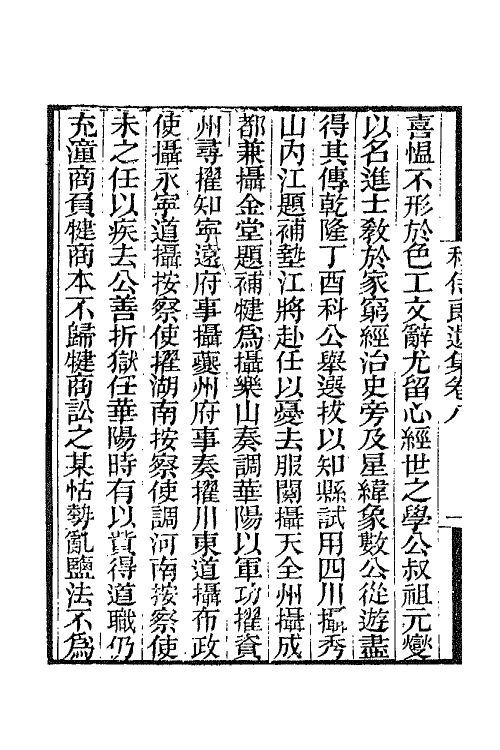 喜慍不形於色工文辭尤留心經世之學公叔祖元燮
以名進士教於家窮經治史旁及星緯象數公從遊盡
得其傳乾隆丁酉科公舉選拔以知縣試用四川攝秀
山內江題補墊江將赴任以憂去服闋攝天全州攝成
都兼攝金堂題補犍爲攝樂山奏調華陽以軍功擢資
州尋擢知寧遠府事攝夔州府事奏擢川東道攝布政
使攝永寧道攝按察使擢湖南按察使調河南按察使
未之任以疾去公善折獄任華陽時有以貲得道職仍
充潼商負犍商本不歸犍商訟之某怙勢亂鹽法不爲